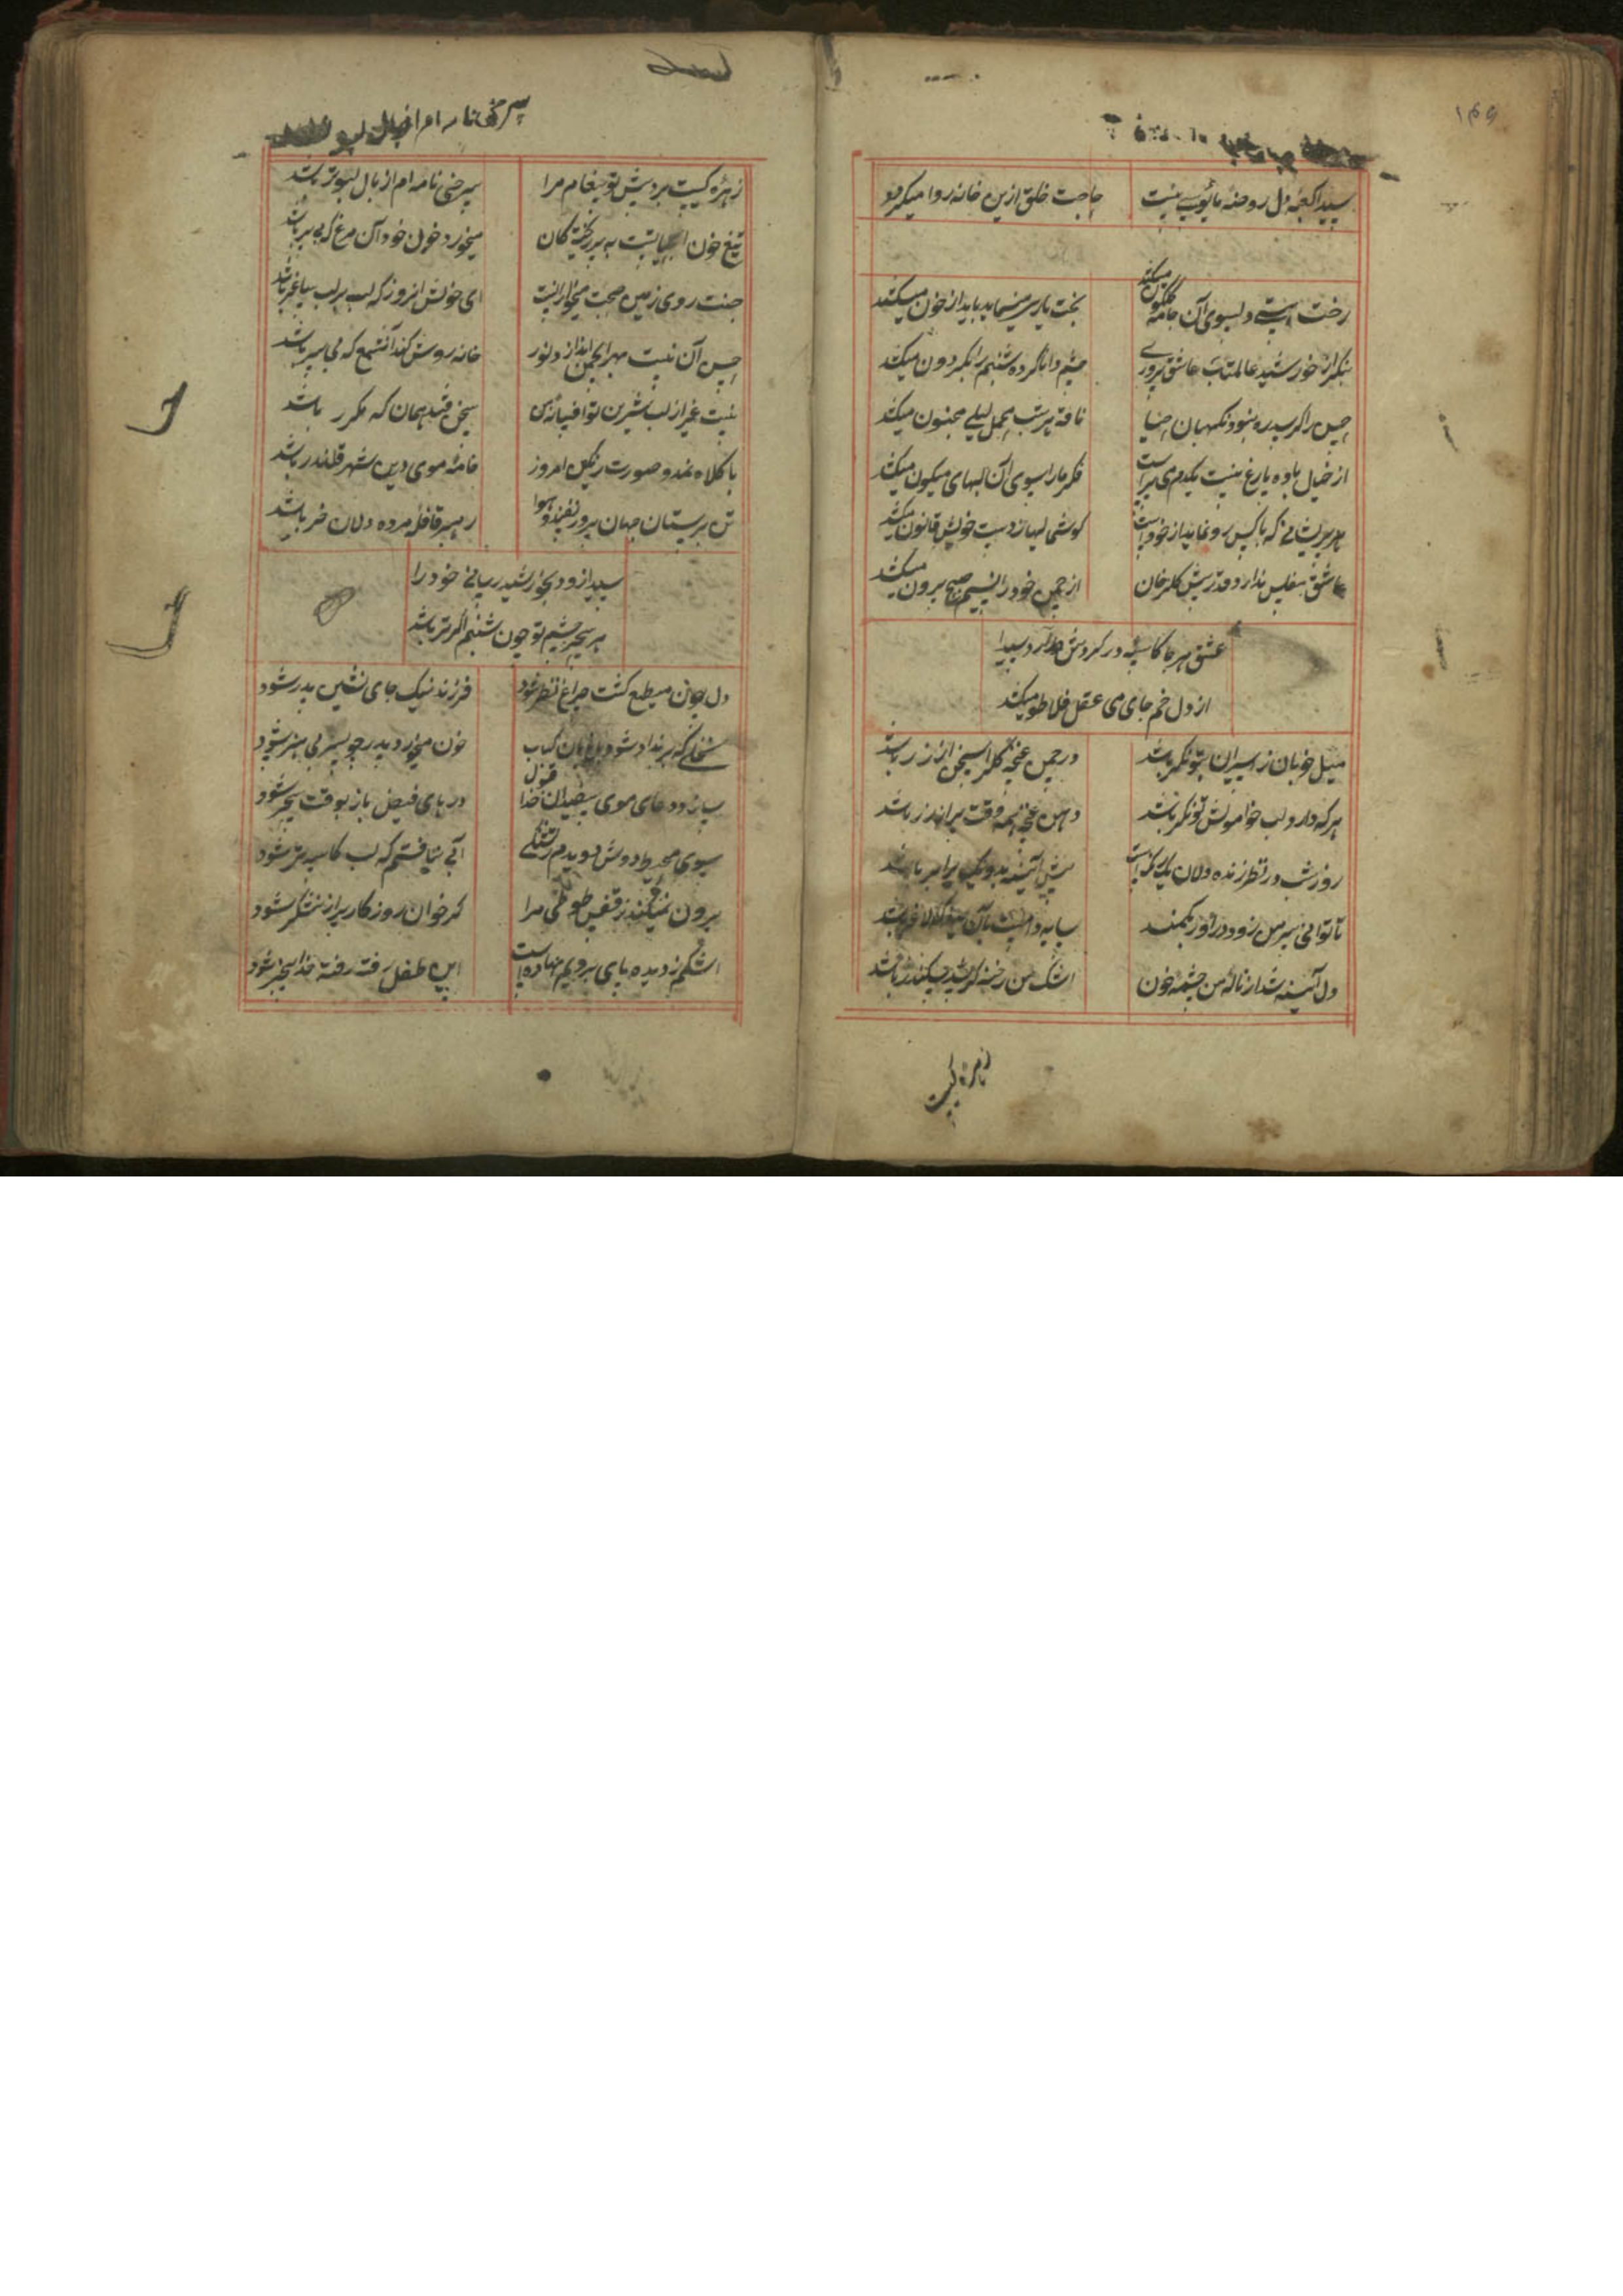 ۱۴۹
سیدا کعبهٔ دل روضهٔ مایوب نیست
حاجت خلق ازین خانه روا میکرد
رخت هستی دل بسوی آن جامه گلگون میکشد
بخت یاری مینماید باید از خون میکشد
بنگر از خورشید عالمتاب عاشق پروری
چشم وا ناکرده شبنم را بگردون میکشد
حسن را گر سد ره نبود نگهبان حیا
ناقه هر شب محمل لیلی مجنون میکشد
از خیال باده فارغ نیست یکدم می پرست
فکر ما را سوی آن لبهای میگون میکشد
هر پریشانی که با کس رو نماید از خود است
گوشمالیها ز دست خویش قانون میکشد
عاشق مفلس ندارد قدر پیش گلرخان
از چمن خود را نسیم صبح بیرون میکشد
عشق هر جا کاسه در گردش درآرد سیدا
از دل خم جای می عقل فلاطون میکشد
میل خوبان ز اسیران بتونگر باشد
در چمن غنچهٔ گل را سخن از زر باشد
هر که دارد لب خاموش تونگر باشد
دهن غنچه همه وقت پر از زر باشد
روز و شب در نظر زنده دلان یکرنگ است
پیش آئینه بد و نیک برابر باشد
ناتوانی سر من زود درآورد بکمند
دل آئینه شد از نالهٔ من چشمهٔ خون
اشک من رخنه گر سد سکندر باشد
زهره کیست
زهرهٔ کیست برد پیش تو پیغام مرا
سرخی نامه ام از بال کبوتر باشد
میخورد خون خود آن مرغ که بی پر باشد
جنت روی زمین صحبت میخوارانست
ای خوش آنروز که لب بر لب ساغر باشد
حسن آن نیست مهر انجمن اندازد نور
خانه روشن کند آن شمع که بی سر باشد
نیست غیر از لب شیرین تو افسانهٔ من
سخن قند همان که مکرر باشد
با کلاه نمد و صورت رنگین امروز
خامهٔ موی درین شهر قلندر باشد
تن پرستان جهان پرور نفسند و هوا
رهبر قافلهٔ مرده دلان خر باشد
سیدا زود بخورشید رسانی خود را
هر سحر چشم تو چون شبنم اگر تر باشد
دل چون مطیع گشت چراغ نظر شود
فرزند نیک جای نشین پدر شود
شاخی که بر نداد شود باغبان کباب
خون میخورد پدر چو پسر بی هنر شود
سازد دعای موی سفیدان خدا قبول
درهای فیض باز بوقت سحر شود
سوی محیط دوش دویدم ز تشنگی
آبی نیافتم که لب کاسه تر شود
بیرون نمیکند ز قفس طوطی مرا
گر خوان روزگار پر از نیشکر شود
اشکم ز دیده پای برویم نهاده است
این طفل رفته رفته خدا بیخبر شود